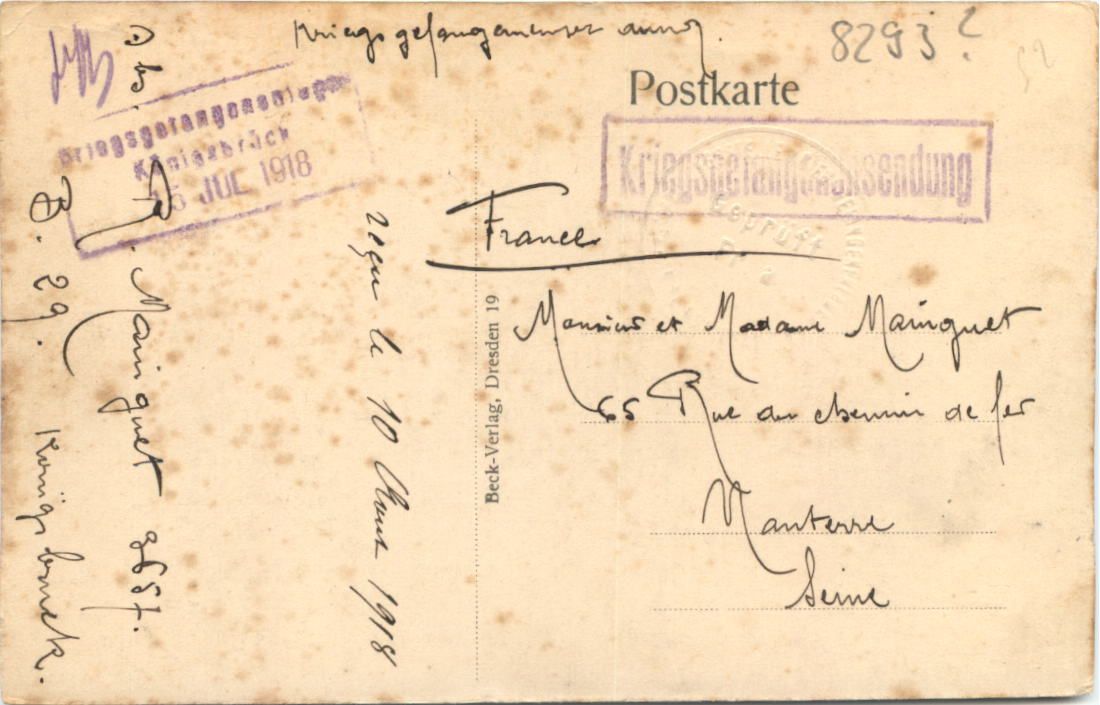 Kriegsgefangenensendung.
8293?
52
Postkarte
Kriegsgefangenensendung
Geprüft
France
Monsieur et Madame Mainguet
65 Rue du chemin de fer
Nanterre
Seine
Beck-Verlag, Dresden 19
Kriegsgefangenenlager
Königsbrück
15 JUL 1918
Abs.
Mainguet 9657.
B. 29. Königsbruck.
reçu le 10 Aout 1918